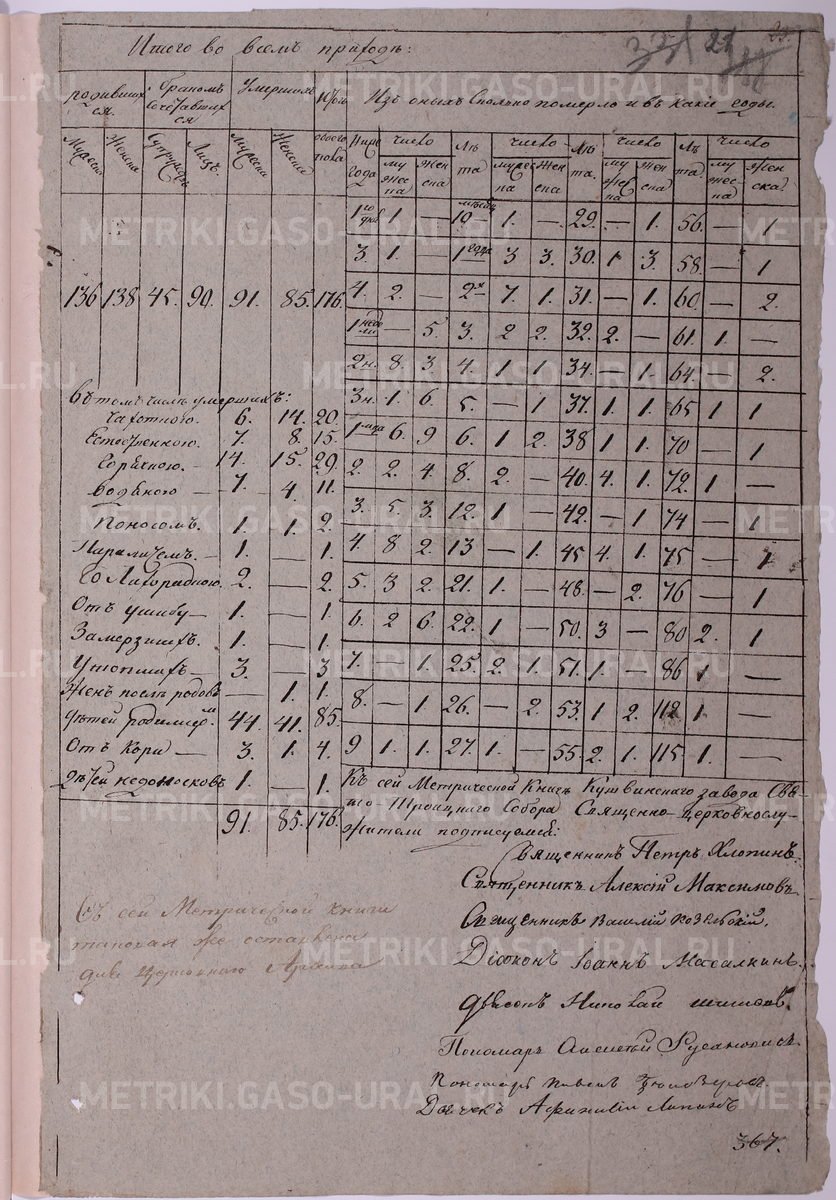 Итого во всемъ приходѣ:
родивших
ся.
бракомъ
сочетавших
ся
Умершихъ
Изъ оныхъ сколько померло и въ какiе годы.
Мужеска
Женска
Супружествъ
Лицъ.
мужеска
Женска
обоего
пола
года
число
му
жес
ка
жен
ска
Лѣ
та
число
мужес
ка
жен
ска
Лѣ
та.
число
му
жес
ка
жен
ска
Лѣ
та.
число
му
жес
ка
жен
ска
136 138. 45. 90. 91. 85. 176.
1го дня 1 — 10 мѣсяц 1. — 29. — 1. 56. — 1
3. 1. — 1 года 3 3. 30. 1 3. 58. — 1
4. 2. — 2х 7. 1. 31. — 1. 60. — 2.
1 неде ли — 5. 3. 2 2. 32. 2. — 61. 1. —
2н. 8. 3. 4. 1 1 34. — 1. 64. — 2.
3н. 1 6. 5. — 1 37. 1. 1. 65 1 1
6. 9 6. 1 2. 38 1 1. 70 — 1
2. 2. 4. 8. 2. — 40. 4. 1. 72. 1 —
3. 5. 3. 12. 1 — 42. — 1 74 — 1
4. 8 2. 13 — 1. 45 4. 1. 75 — 1
5. 3 2. 21. 1. — 48. — 2. 76 — 1
6. 2 6. 22. 1 — 50. 3 — 80 2. 1
7. — 1. 25. 2. 1. 51. 1. — 86 1 —
8. — 1 26. — 2. 53. 1 2. 112 1 —
9 1. 1. 27. 1. — 55. 2. 1. 115 1. —
Въ томъ числѣ умершихъ:
Чахоткою. 6. 14. 20.
Естественною. 7. 8. 15.
Горячкою. — 14. 15. 29.
водяною — 7. 4. 11.
Поносомъ. 1. 1. 2.
Параличемъ. — 1. — 1.
Лихорадкою. 2. — 2.
Отъ ушибу — 1. — 1.
Замерзшихъ. 1. — 1.
Утопшихъ — 3. — 3
Женъ послѣ родовъ — 1. 1.
дѣтей родимцемъ 44. 41. 85.
Отъ Кори — 3. 1. 4.
дѣтей недоносковъ 1. — 1.
91. 85. 176.
Къ сей Метрической Книгѣ Кушвинскаго завода Свя
то-Троицкаго Собора Священно-церковнослу-
жители подписуемся:
Священникъ Петръ Хлопинъ.
Священникъ Алексiй Максимовъ
Священникъ Василiй Козельскiй.
Дiаконъ Iоаннъ Масалкинъ.
Дьяконъ Николай Шишовъ.
Пономарь Алексѣй
Пономарь Павелъ
Дьячекъ Афанасiй Ляпинъ
Съ сей Метрической книги
таковая же оставлена
для церковнаго Архива
367.
METRIKI.GASO-URAL.RU